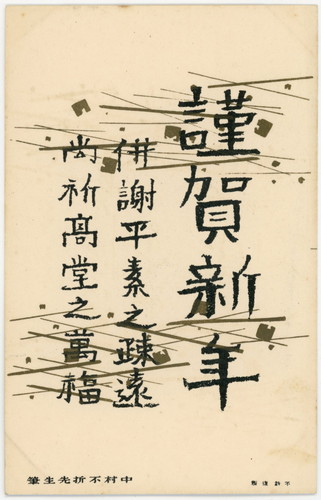 謹賀新年
併謝平素之疎遠
尚祈高堂之萬福
中村不折先生筆